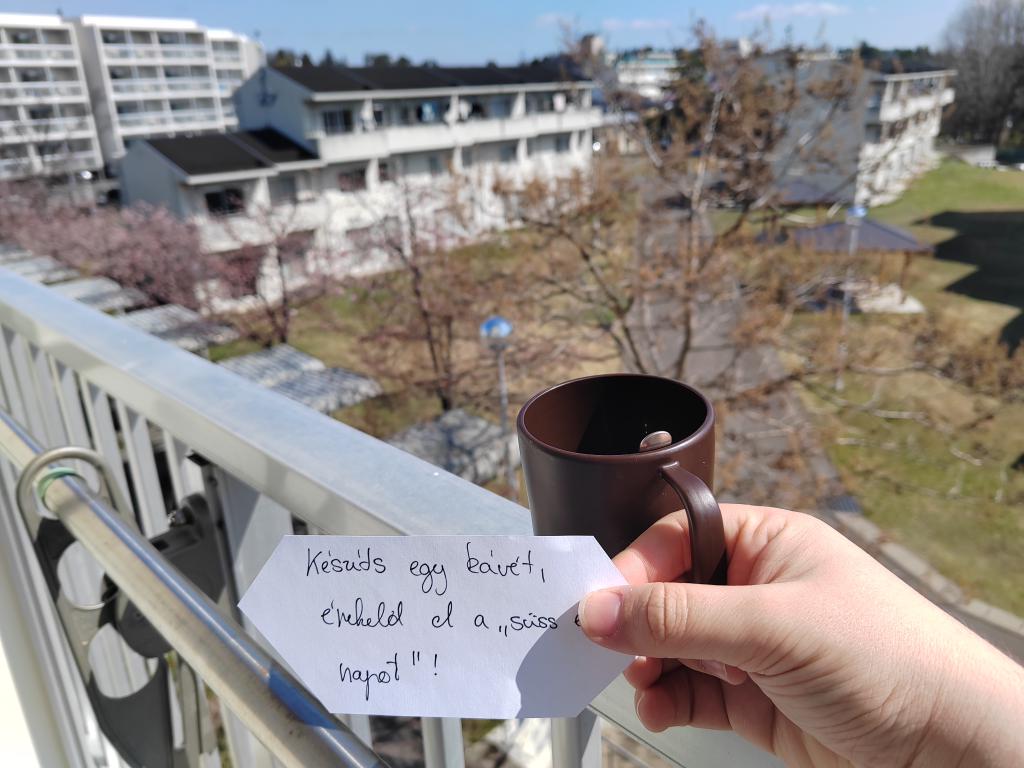 Készíts egy kávét,
énekeld el a „süss
napot"!